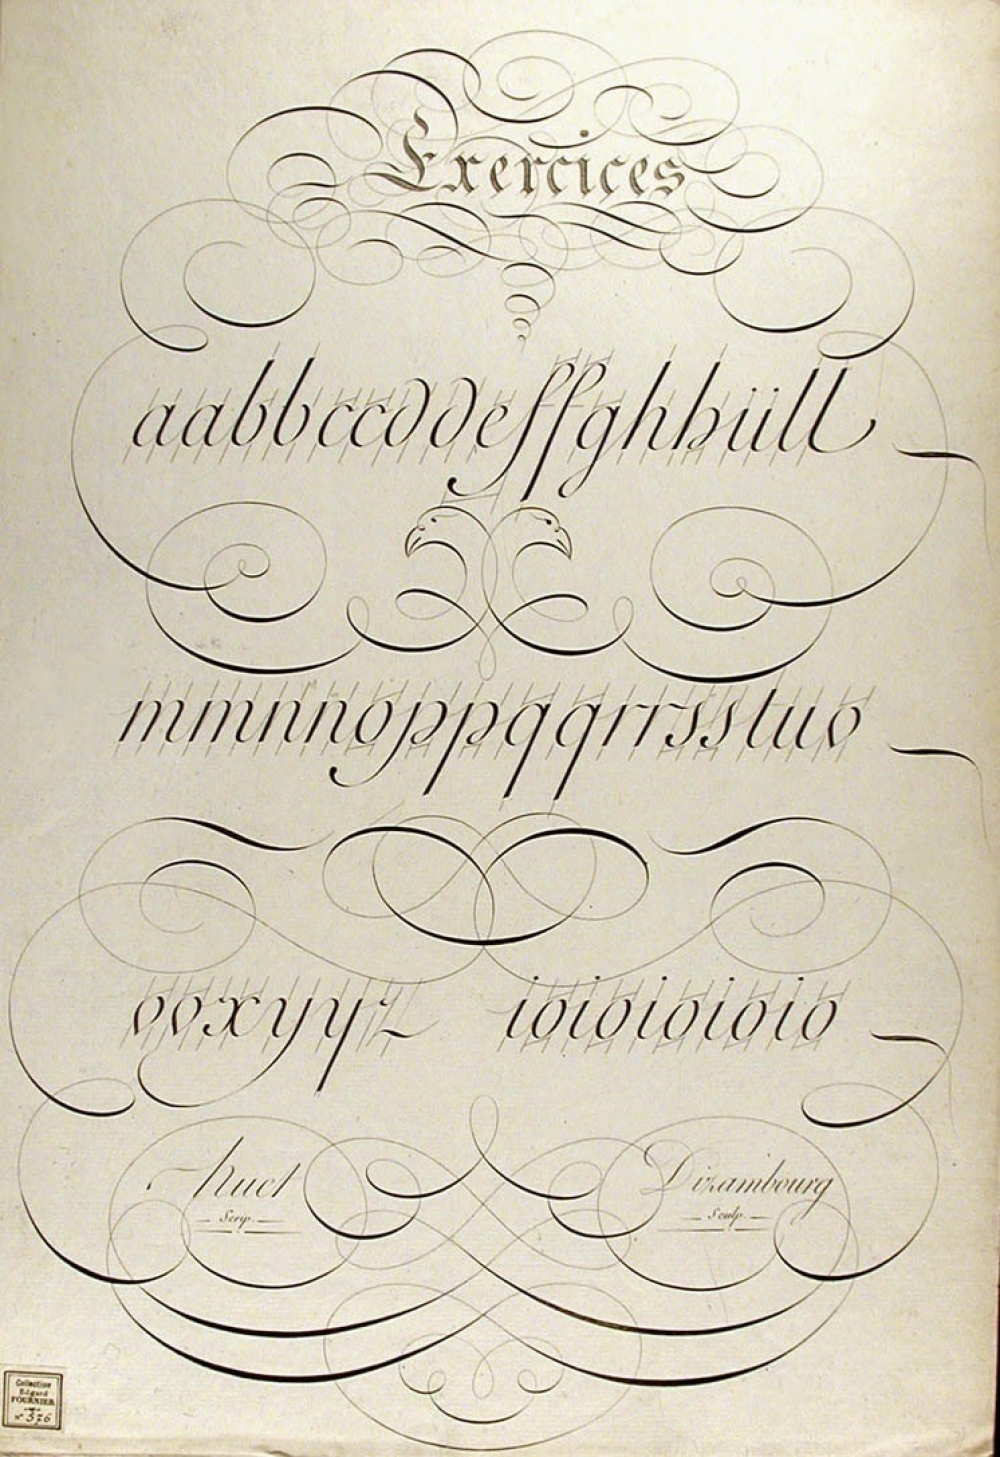 Exercices
aabbccddeffghhiill
mmnnoppqqrrsstuv
vvxyyz ioioioioio
huet Dizambourg
Scrip. Sculp.
Collection
Edgard
FOURNIER
N° 376